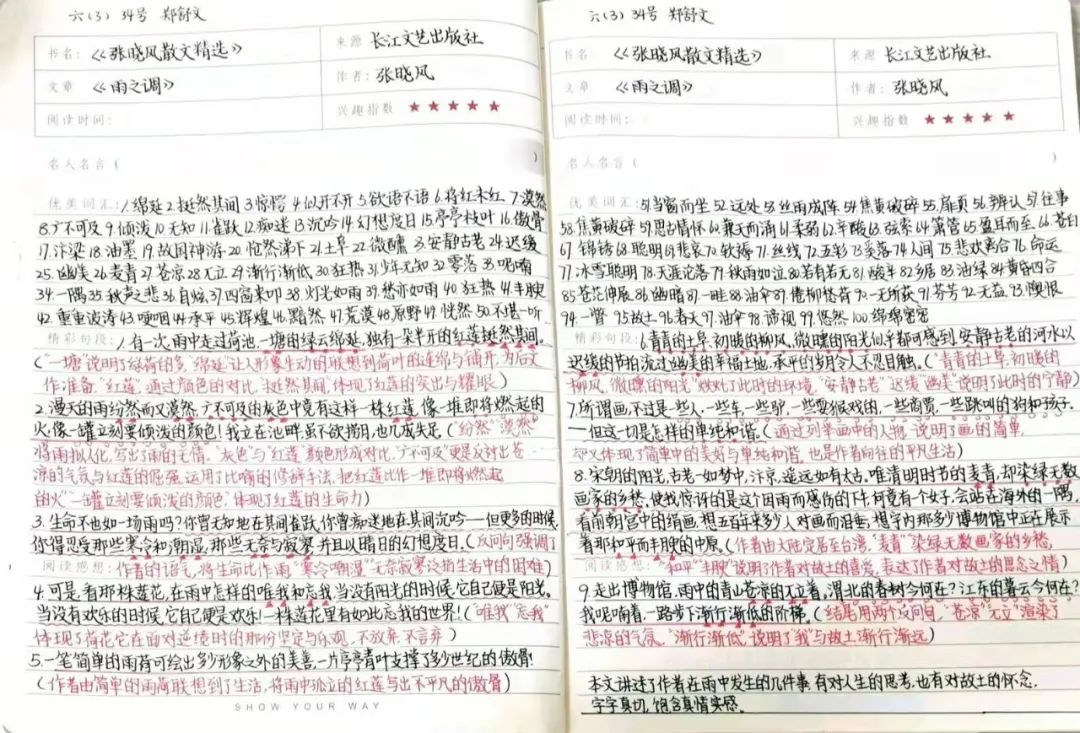 六(3) 34号 郑舒文
书名: 《张晓风散文精选》 来源 长江文艺出版社
文章 《雨之调》 作者: 张晓风
阅读时间: 兴趣指数 ★★★★★
名人名言( )
优美词汇: 1.绵延 2.挺然其间 3.惊愕 4.似开不开 5.欲语不语 6.将红未红 7.漠然
8.广不可及 9.倾泼 10.无知 11.雀跃 12.痴迷 13.沉吟 14.幻想度日 15.亭亭枝叶 16.傲骨
17.汴梁 18.油墨 19.故国神游 20.怆然涕下 21.土阜 22.微醺 23.安静古老 24.迟缓
25.幽美 26.麦青 27.苍凉 28.兀立 29.渐行渐低 30.狂热 31.少年无知 32.零落 33.呢喃
34.一隅 35.秋声之悲 36.自炫 37.四窗来叩 38.灯光如雨 39.愁亦如雨 40.狂热 41.丰腴
42.重重波涛 43.哽咽 44.承平 45.辉煌 46.黯然 47.荒漠 48.原野 49.恍然 50.不堪一听
精彩句段: 1.有一次,雨中走过荷池,一塘的绿云绵延,独有一朵半开的红莲挺然其间。
("一塘"说明了绿荷的多,"绵延"让人形象生动的联想到荷叶的连绵与铺开,为后文
作准备,"红莲"通过颜色的对比,"挺然其间"体现了红莲的突出与耀眼)
2.漫天的雨纷然而又漠然,广不可及的灰色中竟有这样一株红莲,像一堆即将燃起的
火,像一罐立刻要倾泼的颜色!我立在池畔,虽不欲捞月,也几成失足。("纷然""漠然"
将雨拟人化,写出了雨的无情,"灰色"与"红莲"颜色形成对比,"广不可及"更是反衬出苍
凉的气氛与红莲的倔强,运用了比喻的修辞手法,把红莲比作一堆即将燃起
的火""一罐立刻要倾泼的颜色,"体现了红莲的生命力)
3.生命不也如一场雨吗?你曾无知地在其间雀跃,你曾痴迷地在其间沉吟——但更多的时候,
你得忍受那些寒冷和潮湿,那些无奈与寂寥,并且以晴日的幻想度日。(反问句强调了
阅读感想: 作者的语气,将生命比作雨,"寒冷潮湿""无奈寂寥"泛指生活中的困难)
4.可是,看那株莲花,在雨中怎样的唯我和忘我,当没有阳光的时候,它自己便是阳光。
当没有欢乐的时候,它自己便是欢乐!一株莲花里有如此忘我的世界!("唯我""忘我"
体现了荷花它在面对逆境时的那份坚定与乐观,不放弃,不言弃)
5.一笔简单的雨荷可绘出多少形象之外的美善,一片亭亭青叶支撑了多少世纪的傲骨!
(作者由简单的雨荷联想到了生活,将雨中孤立的红莲写出不平凡的傲骨)
SHOW YOUR WAY
六(3) 34号 郑舒文
书名: 《张晓风散文精选》 来源 长江文艺出版社
文章 《雨之调》 作者: 张晓风
阅读时间: 兴趣指数 ★★★★★
名人名言( )
优美词汇: 51.当窗而坐 52.远处 53.丝雨成阵 54.焦黄破碎 55.扉页 56.辨认 57.往事
58.焦黄破碎 59.思古情怀 60.兼天而涌 61.柔弱 62.辛酸 63.弦索 64.箫管 65.盈耳而至 66.苍白
67.锦绣 68.聪明 69.悲哀 70.软褥 71.丝线 72.五彩 73.采落 74.人间 75.悲欢离合 76.命运
77.冰雪聪明 78.天涯沦落 79.秋雨如泣 80.若有若无 81.酸辛 82.乡居 83.油绿 84.黄昏四合
85.苍茫伸展 86.幽暗 87.一畦 88.油伞 89.倦柳愁荷 90.一无所获 91.芬芳 92.无益 93.懊恨
94.一瞥 95.故土 96.春天 97.油伞 98.谛视 99.悠然 100.绵绵密密
精彩句段: 6.青青的土阜,初暖的柳风,微醺的阳光似乎都可感到,安静古老的河水以
迟缓的节拍流过幽美的幸福土地,承平的岁月令人不忍目触。("青青的土阜,初暖的
柳风,微醺的阳光"烘托了此时的环境,"安静古老""迟缓""幽美"说明了此时的宁静)
7.所谓画,不过是一些人,一些车,一些驴,一些耍猴戏的,一些商贾,一些跳叫的狗和孩子.
—但这一切是怎样的单纯和谐。(通过列举画中的人物,说明了画的简单,
却又体现了简单中的美好与单纯和谐,也是作者向往的平凡生活)
8.宋朝的阳光,古老一如梦中,汴京,遥远如有太古。唯清明时节的麦青,却染绿无数
画家的乡愁,使我惊讶的是这个因雨而感伤的下午,何竟有个女子,会站在海外的一隅,
看前朝宫中的绢画,想五百年来多少人对画而泪垂,想宇内那多少博物馆中正在展示
着那和平而丰腴的中原。(作者由大陆定居至台湾,"麦青"染绿无数画家的乡愁,
阅读感想: "和平""丰腴"说明了作者对故土的喜爱,表达了作者对故土的思念之情)
9.走出博物馆,雨中的青山苍凉的兀立着,渭北的春树今何在?江东的暮云今何在?
我呢喃着,一路步下渐行渐低的阶梯。(结尾用两个反问句,"苍凉""兀立"渲染了
悲凉的气氛,"渐行渐低"说明了"我"与故土渐行渐远)
本文讲述了作者在雨中发生的几件事,有对人生的思考,也有对故土的怀念.
字字真切,饱含真情实感。